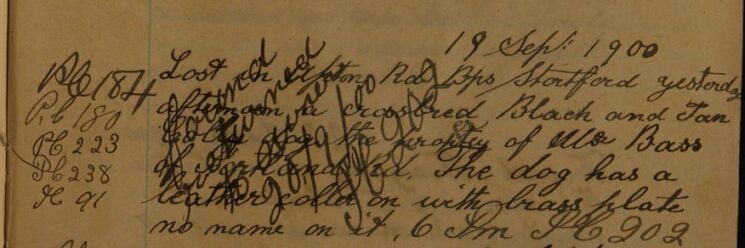 19 Sept: 1900
PC 184
P.C 180
PC 223
PC 238
PC 91
Lost in Rd Bps Stortford yesterday
afternoon a crossbred Black and Tan
Collie dog the property of Mr Bass
of Portland Rd. The dog has a
leather collar on with brass plate
no name on it. 6 Pm PC 202
Found
returned
to owner
20/9/00
PC 202